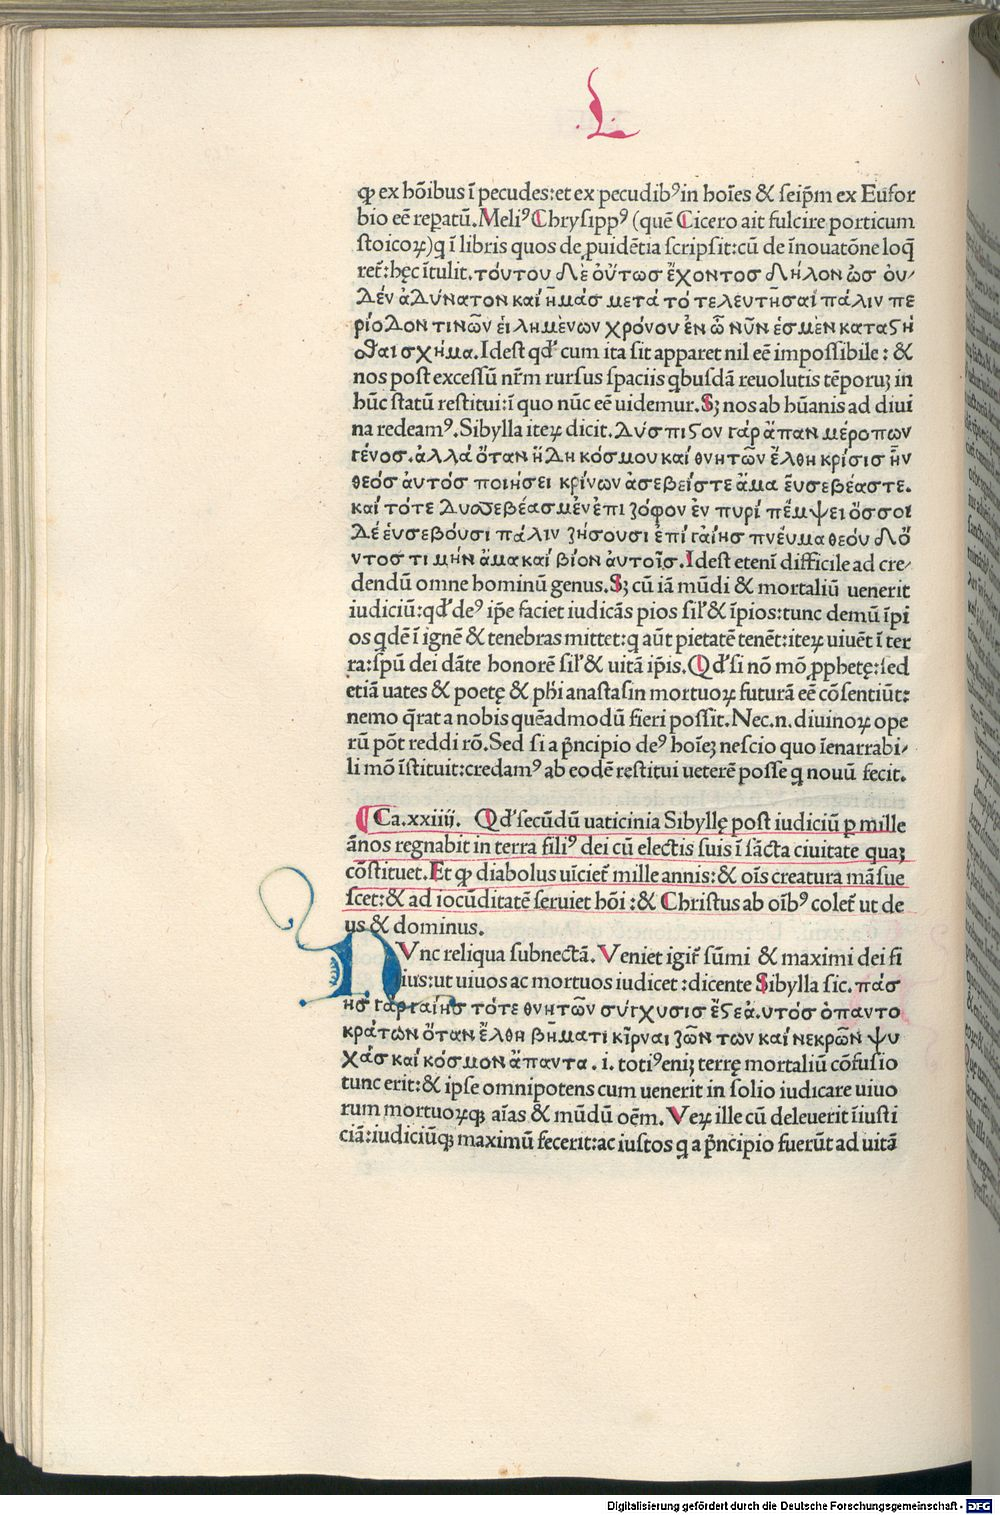 L
ꝙ ex hōibus ī pecudes:et ex pecudibꝰ in hoīes & seip̄m ex Eufor
bio eē repatū. Meliꝰ Chrysippꝰ (quē Cicero ait fulcire porticum
stoicoꝝ) q̇ ī libris quos de ꝓuidētia scripsit:cū de īnouatōne loq̄
ret᷑:hęc ītulit. τόυτου Δὲ ὀύτωσ ἔχοντοσ Δῆλον ὡσ ὀυ/
Δέν ἀΔύνατον καί ἡμάσ μετά τό τελευτῆσαί πάλιν πε
ρίοΔον τινῶν ἐιλημένων χρόνου ἐν ὧ νῦν ἐσμὲν καταϛή
σθαι σχῆμα. Idest qd̓ cum ita sit apparet nil eē impossibile: &
nos post excessū nr̄m rursus spaciis qbusdā reuolutis tēporuꝫ in
hūc statū restitui:ī quo nūc eē uidemur. Sꝫ nos ab hūanis ad diui
na redeamꝰ. Sibylla iteꝝ dicit. Δύσπιϛον γάρ ἅπαν μέροπων
γένοσ. ἀλλά ὅταν ἤΔη κόσμου καί θνητῶν ἔλθη κρίσισ ἣν
θεόσ ἀυτόσ ποιήσει κρίνων ἀσεβεῖστε ἅμα ἐυσεβέαστε.
καί τότε Δυσσεβέασ μέν ἐπι ζόφον ἐν πυρί πέμψει ὅσσοι
Δέ ἐυσεβόυσι πάλιν ζήσουσι ἐπί γαίησ πνέυμα θεόυ Δό
ντοσ τιμήν ἅμα καί βίον ἀυτοῖσ. Idest etenī difficile ad cre/
dendū omne hominū genus. Sꝫ cū iā mūdi & mortaliū uenerit
iudiciū:qd̓ deꝰ ip̄e faciet iudicās pios sil̓ & īpios:tunc demū īpi
os qdē ī ignē & tenebras mittet: q aūt pietatē tenēt:iteꝝ uiuēt ī ter
ra:sp̄ū dei dāte honorē sil̓ & uitā ip̄is. Qd̓ si nō mō ꝓphetę:sed
etiā uates & poetę & ph̄i anastasin mortuoꝝ futurā eē cōsentiūt:
nemo q̄rat a nobis quēadmodū fieri possit. Nec.n.diuinoꝝ ope
rū pōt reddi rō. Sed si a p̄ncipio deꝰ hoīeꝫ nescio quo īenarrabi/
li mō īstituit:credamꝰ ab eodē restitui ueterē posse q nouū fecit.
Ca.xxiiij. Qd̓ secūdū uaticinia Sibyllę post iudiciū ꝑ mille
ānos regnabit in terra filiꝰ dei cū electis suis ī sācta ciuitate quaꝫ
cōstituet. Et ꝙ diabolus uīciet᷑ mille annis:& oīs creatura māsue
scet:& ad iocūditatē seruiet hōi:& Christus ab oīb̓ꝰ colet᷑ ut de
us & dominus.
NVnc reliqua subnectā. Veniet igit᷑ sūmi & maximi dei fi
lius:ut uiuos ac mortuos iudicet:dicente Sibylla sic. πάσ
ησ γάρ γαίησ τότε θνητῶν σύγχυσισ ἔϛεά.υτόσ ὁπαντο
κράτων ὅταν ἔλθη βήματι κῖρναι ζῶν των καί νεκρῶν ψυ
χάσ καί κόσμον ἅπαντα. .i. totiꝰ eniꝫ terrę mortaliū cōfusio
tunc erit:& ipse omnipotens cum uenerit in solio iudicare uiuo
rum mortuoꝝqꝫ aīas & mūdū oēm. Veꝝ ille cū deleuerit īiusti
ciā:iudiciūqꝫ maximū fecerit:ac iustos q a p̄ncipio fuerūt ad uitā
Digitalisierung gefördert durch die Deutsche Forschungsgemeinschaft - DFG